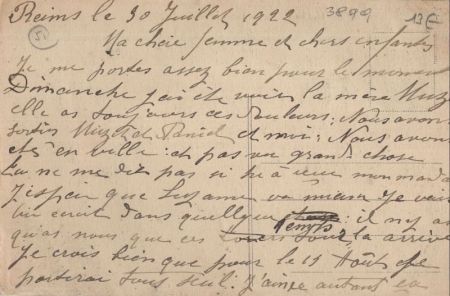 Reims le 30 Juillet 1922
3899
17€
5
Ma chère femme et chers enfants
Je me portes assez bien pour le moment
Dimanche j'ai été voir la mère Muz
elle as toujours ces douleurs; Nous avons
sortis Muz et Daniel et moi; Nous avons
etés en ville: et pas vu grand chose
Tu ne me dit pas si tu à reçu mon manda
J'espère que Suzanne va mieux Je vais
lui écrire dans quelque temps: il n'y as
qu'as nous que ces pour la arrive
Je crois bien que pour le 15 Août je
partirai tous seul: J'aime autant ca